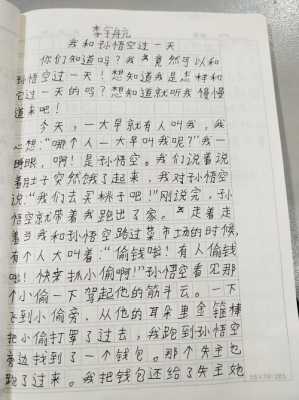 我和孙悟空过一天
你们知道吗？我竟然可以和
孙悟空过一天！想知道我是怎样和
它过一天的吗？想知道就听我慢慢
道来吧！
今天，一大早就有人叫我，我
心想：“哪个人一大早叫我呢？”我一
睁眼，啊！是孙悟空。我们说着说
着肚子突然饿了起来，我对孙悟空
说：“我们去买桃子吧！”刚说完，孙
悟空就带着我跑出了家。走着走
着当我和孙悟空路过菜市场的时候，
有个人大叫着：“偷钱啦！有人偷钱
啦！快来抓小偷啊！”孙悟空看见那
个小偷一下驾起他的筋斗云。一下
飞到小偷旁，从他的耳朵里金箍棒
把小偷打晕了过去，我跑到孙悟空
旁边找到了一个钱包。那个失主也
跑了过来。我把钱包还给了失主她